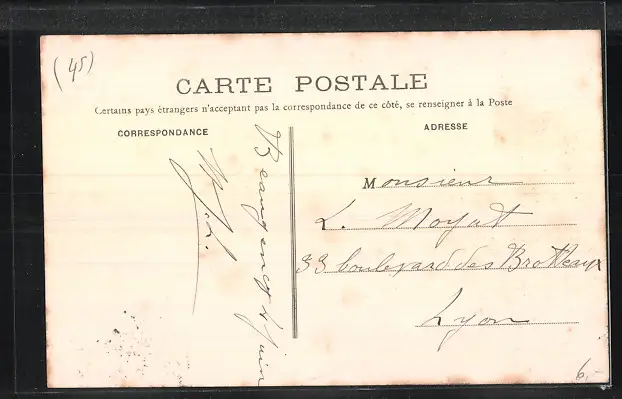 (45)
CARTE POSTALE
Certains pays étrangers n'acceptant pas la correspondance de ce côté, se renseigner à la Poste
CORRESPONDANCE
ADRESSE
Beaugency 4 juin
Monsieur
L. Moyat
33 boulevard des Brotteaux
Lyon
6,-